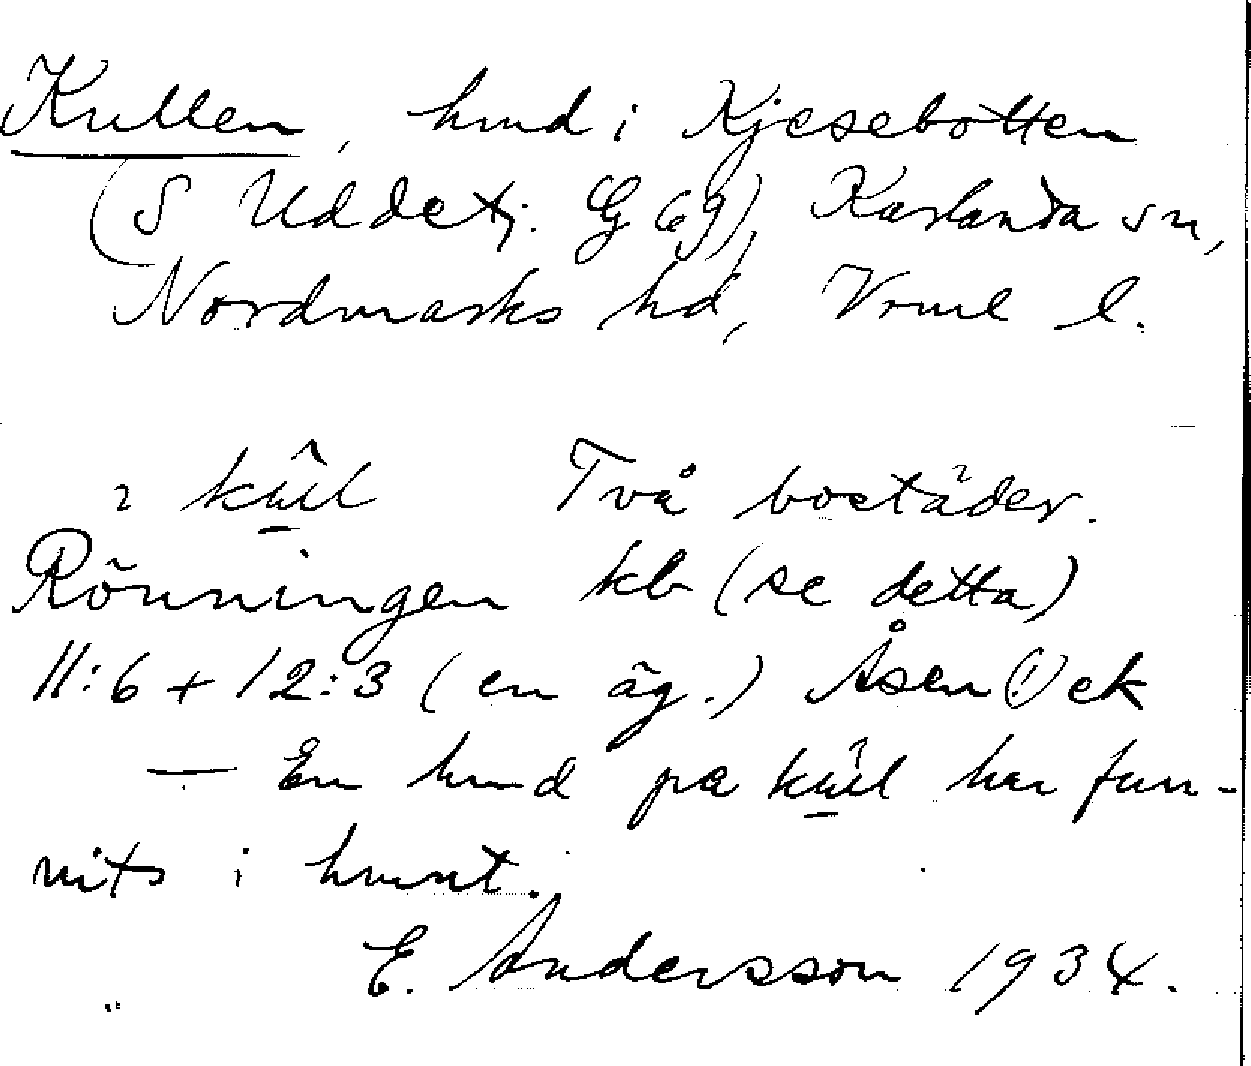 Kullen, hmd i Kjesebotten
(S Uddetj. G 69), Karlanda sn,
Nordmarks hd, Vrml l.
kûl Två bostäder.
Rönningen kb (se detta)
11:6 + 12:3 (en äg.) Åsen (1) ek
— En hmd på kûl har fun-
nits i hmnt.
E. Andersson 1934.